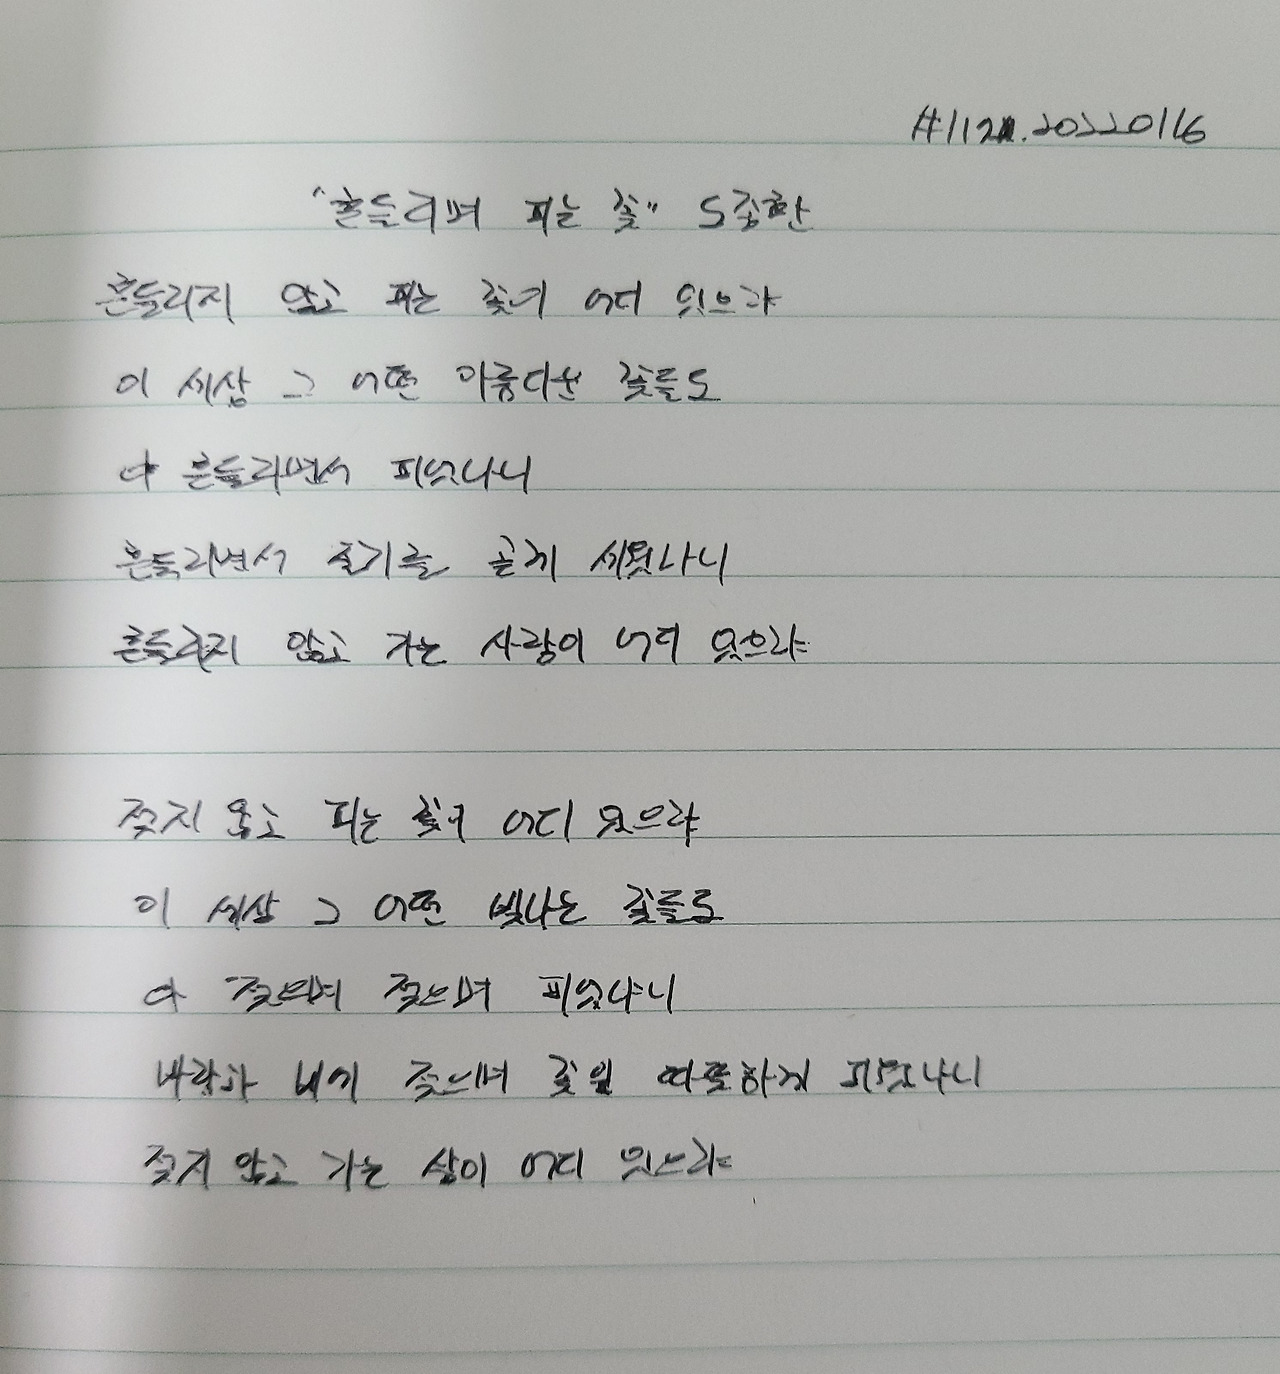 20220116
"흔들리며 피는 꽃" 도종환
흔들리지 않고 피는 꽃이 어디 있으랴
이 세상 그 어떤 아름다운 꽃들도
다 흔들리면서 피었나니
흔들리면서 줄기를 곧게 세웠나니
흔들리지 않고 가는 사랑이 어디 있으랴
젖지 않고 피는 꽃이 어디 있으랴
이 세상 그 어떤 빛나는 꽃들도
다 젖으며 젖으며 피었나니
바람과 비에 젖으며 꽃잎 따뜻하게 피웠나니
젖지 않고 가는 삶이 어디 있으랴